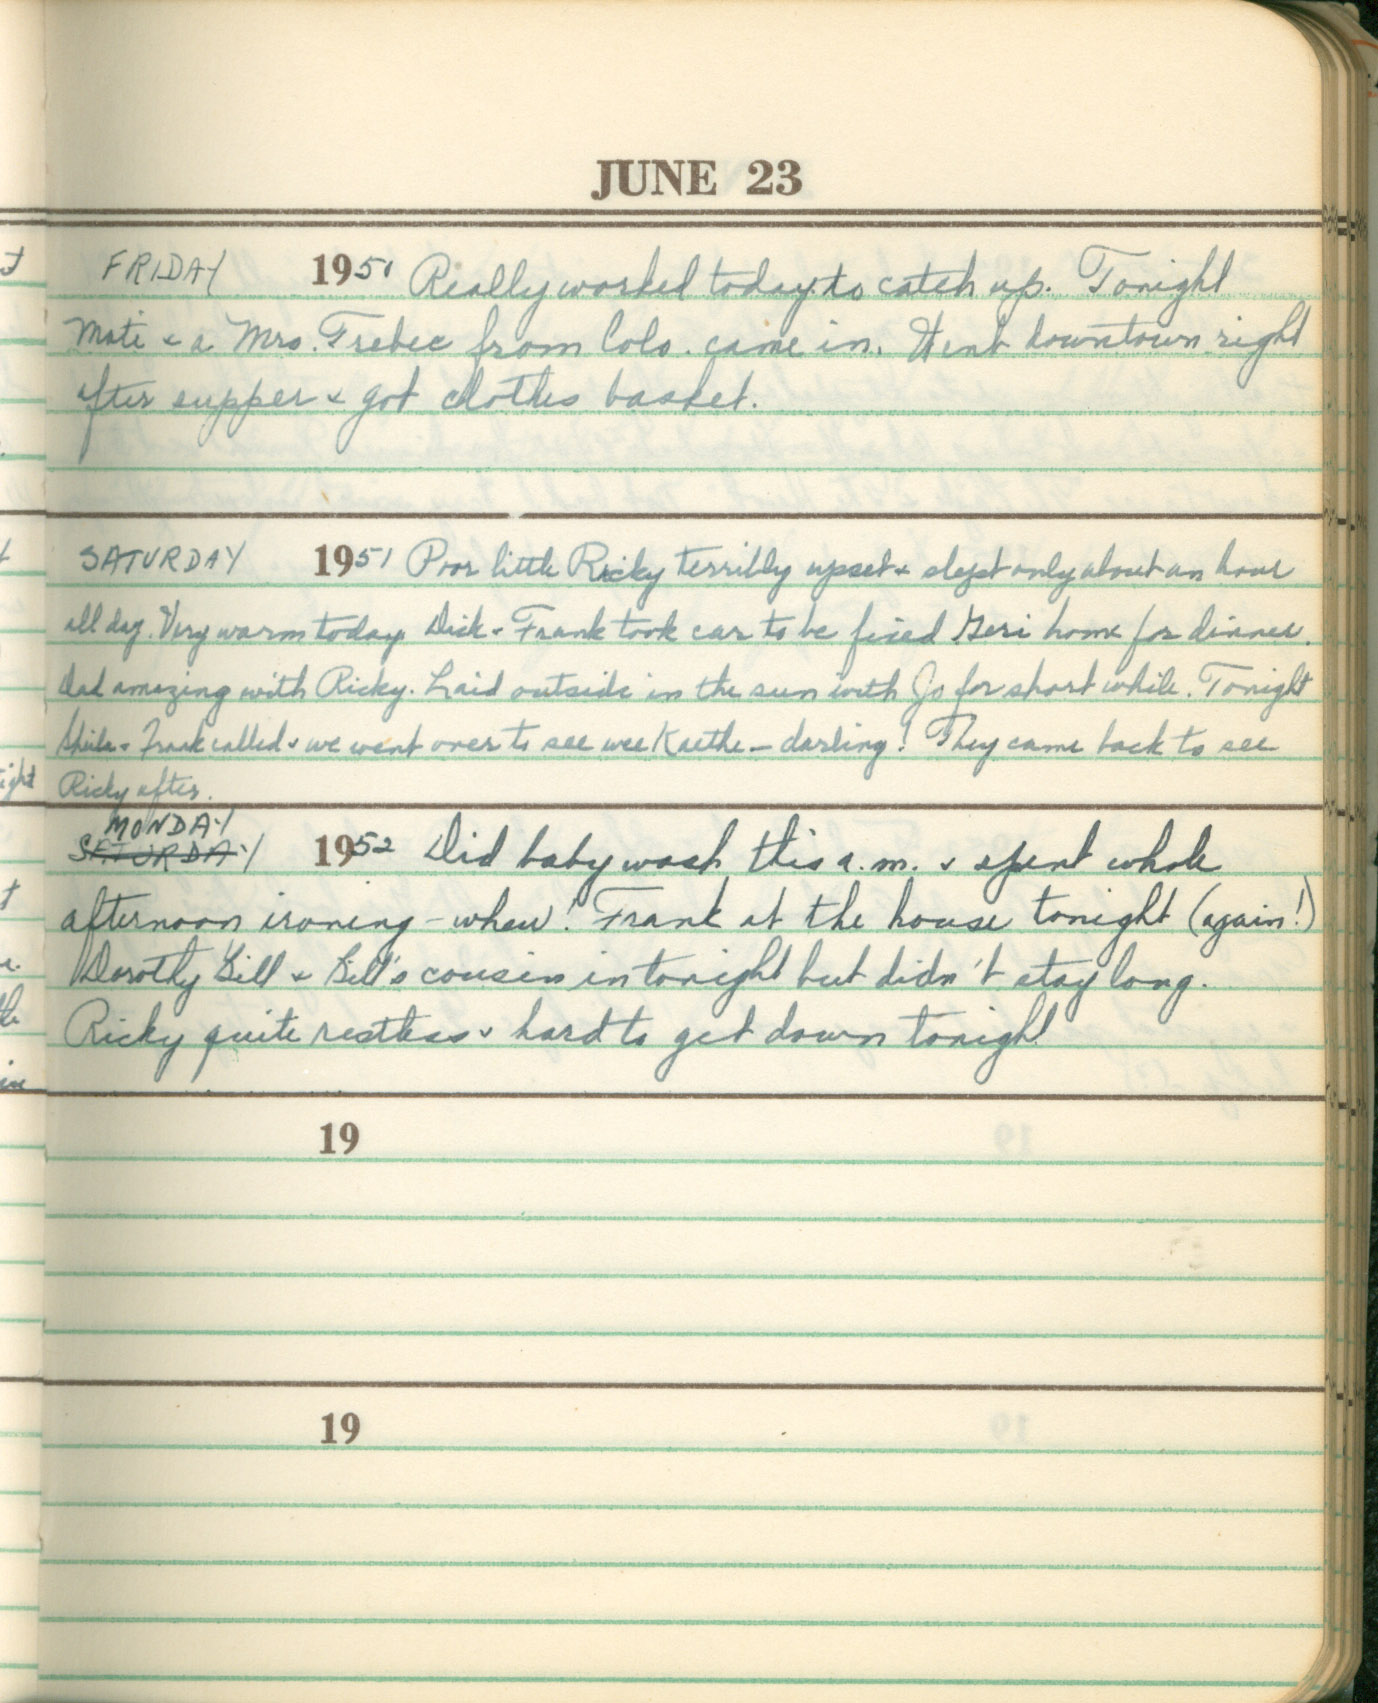 JUNE 23
FRIDAY 1950 Really worked today to catch up. Tonight
Mate & a Mrs. Trebec from Colo. came in. Went downtown right
after supper & got clothes basket.
SATURDAY 1951 Poor little Ricky terribly upset & slept only about an hour
all day. Very warm today. Dick & Frank took car to be fixed Geri home for dinner.
Dad amazing with Ricky. Laid outside in the sun with Jo for short while. Tonight
Sheila & Frank called & we went over to see wee Kaethe – darling! They came back to see
Ricky after.
MONDAY
SATURDAY 1952 Did baby wash this a.m. & spent whole
afternoon ironing – whew! Frank at the house tonight (again!)
Dorothy Bill & Bill's cousin in tonight but didn't stay long.
Ricky quite restless & hard to get down tonight
19
19